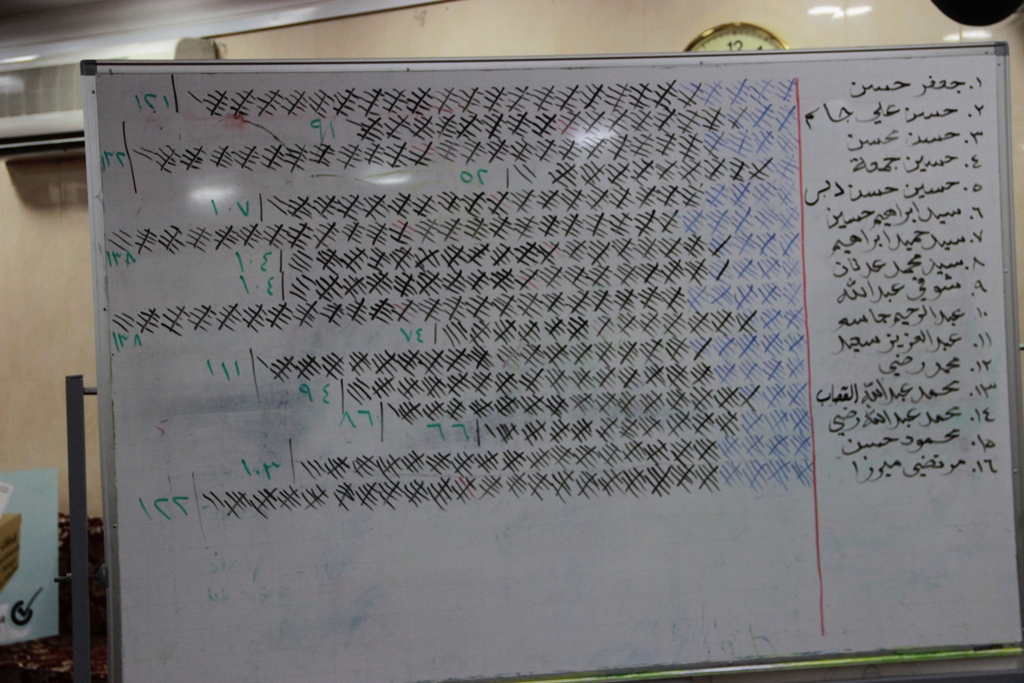 ١. جعفر حسين ١٢١
٢. حسين علي جاسم ٩١
٣. حسن محسن ١٢٢
٤. حسين جمعة ٥٢
٥. حسين حسن دبس ١٠٧
٦. سيد ابراهيم حسين ١٣٨
٧. سيد حميد ابراهيم ١٠٤
٨. سيد محمد عدنان ١٠٤
٩. شوقي عبدالله ١٣٨
١٠. عبدالرحيم جاسم ٧٤
١١. عبدالعزيز سعيد ١١١
١٢. محمد رضي ٩٤
١٣. محمد عبدالله القصاب ٨٦
١٤. محمد عبدالله رضي ٦٦
١٥. محمود حسين ١٠٣
١٦. مرتضى ميرزا ١٢٢
12